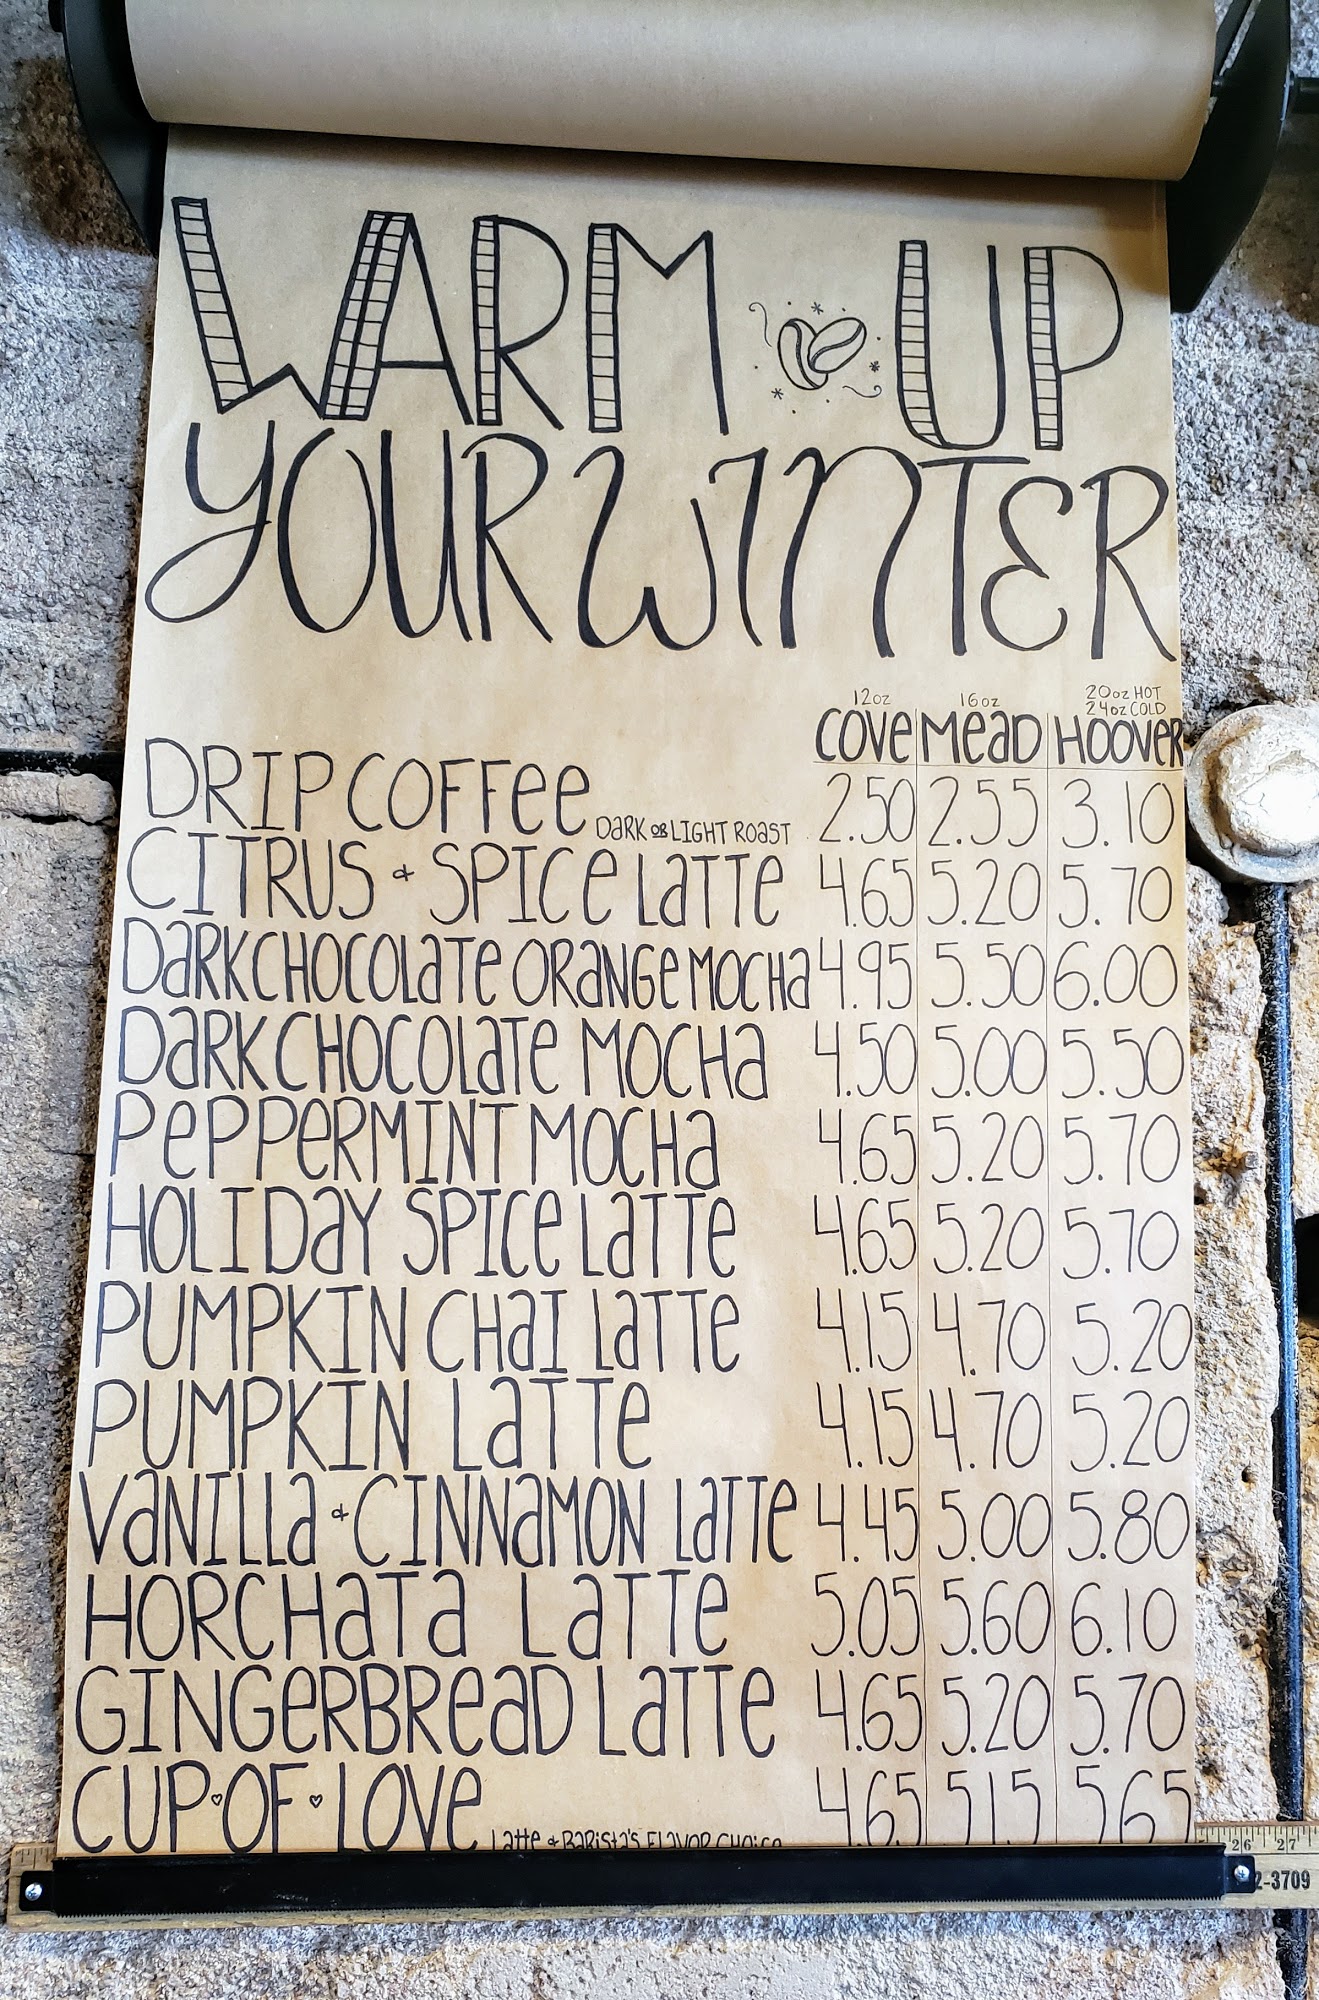 WARM UP
YOUR WINTER
12oz 16oz 20oz HOT
24oz COLD
COVE MEAD HOOVER
DRIP COFFEE DARK OR LIGHT ROAST 2.50 2.55 3.10
CITRUS & SPICE LATTE 4.65 5.20 5.70
DARK CHOCOLATE ORANGE MOCHA 4.95 5.50 6.00
DARK CHOCOLATE MOCHA 4.50 5.00 5.50
PEPPERMINT MOCHA 4.65 5.20 5.70
HOLIDAY SPICE LATTE 4.65 5.20 5.70
PUMPKIN CHAI LATTE 4.15 4.70 5.20
PUMPKIN LATTE 4.15 4.70 5.20
VANILLA & CINNAMON LATTE 4.45 5.00 5.80
HORCHATA LATTE 5.05 5.60 6.10
GINGERBREAD LATTE 4.65 5.20 5.70
CUP OF LOVE Latte & Barista's Flavor Choice 4.65 5.15 5.65
26 27
2-3709